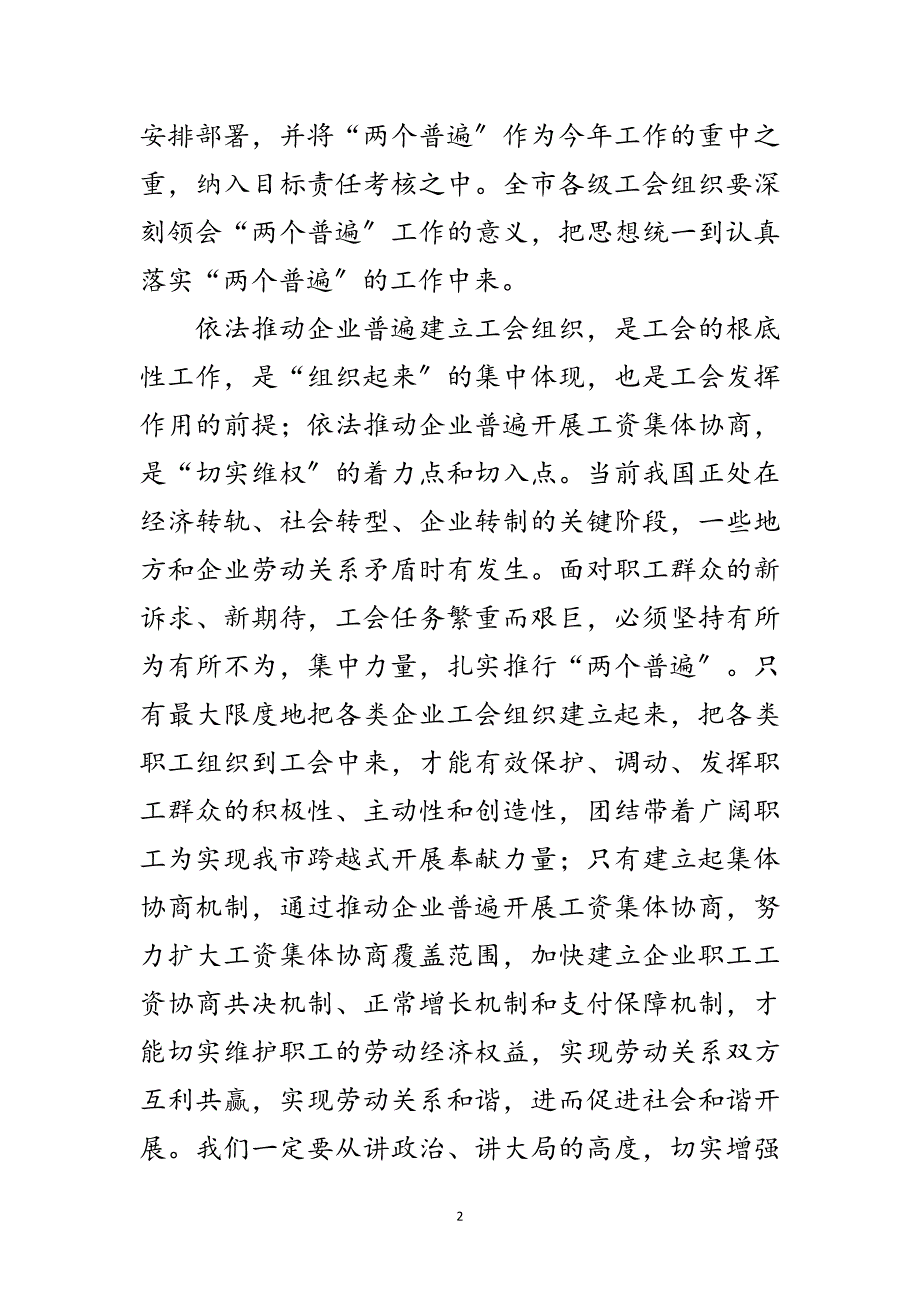 安排部署，并将“两个普遍〞作为今年工作的重中之
重，纳入目标责任考核之中。全市各级工会组织要深
刻领会“两个普遍〞工作的意义，把思想统一到认真
落实“两个普遍〞的工作中来。
依法推动企业普遍建立工会组织，是工会的根底
性工作，是“组织起来〞的集中体现，也是工会发挥
作用的前提；依法推动企业普遍开展工资集体协商，
是“切实维权〞的着力点和切入点。当前我国正处在
经济转轨、社会转型、企业转制的关键阶段，一些地
方和企业劳动关系矛盾时有发生。面对职工群众的新
诉求、新期待，工会任务繁重而艰巨，必须坚持有所
为有所不为，集中力量，扎实推行“两个普遍〞。只
有最大限度地把各类企业工会组织建立起来，把各类
职工组织到工会中来，才能有效保护、调动、发挥职
工群众的积极性、主动性和创造性，团结带着广阔职
工为实现我市跨越式开展奉献力量；只有建立起集体
协商机制，通过推动企业普遍开展工资集体协商，努
力扩大工资集体协商覆盖范围，加快建立企业职工工
资协商共决机制、正常增长机制和支付保障机制，才
能切实维护职工的劳动经济权益，实现劳动关系双方
互利共赢，实现劳动关系和谐，进而促进社会和谐开
展。我们一定要从讲政治、讲大局的高度，切实增强
2